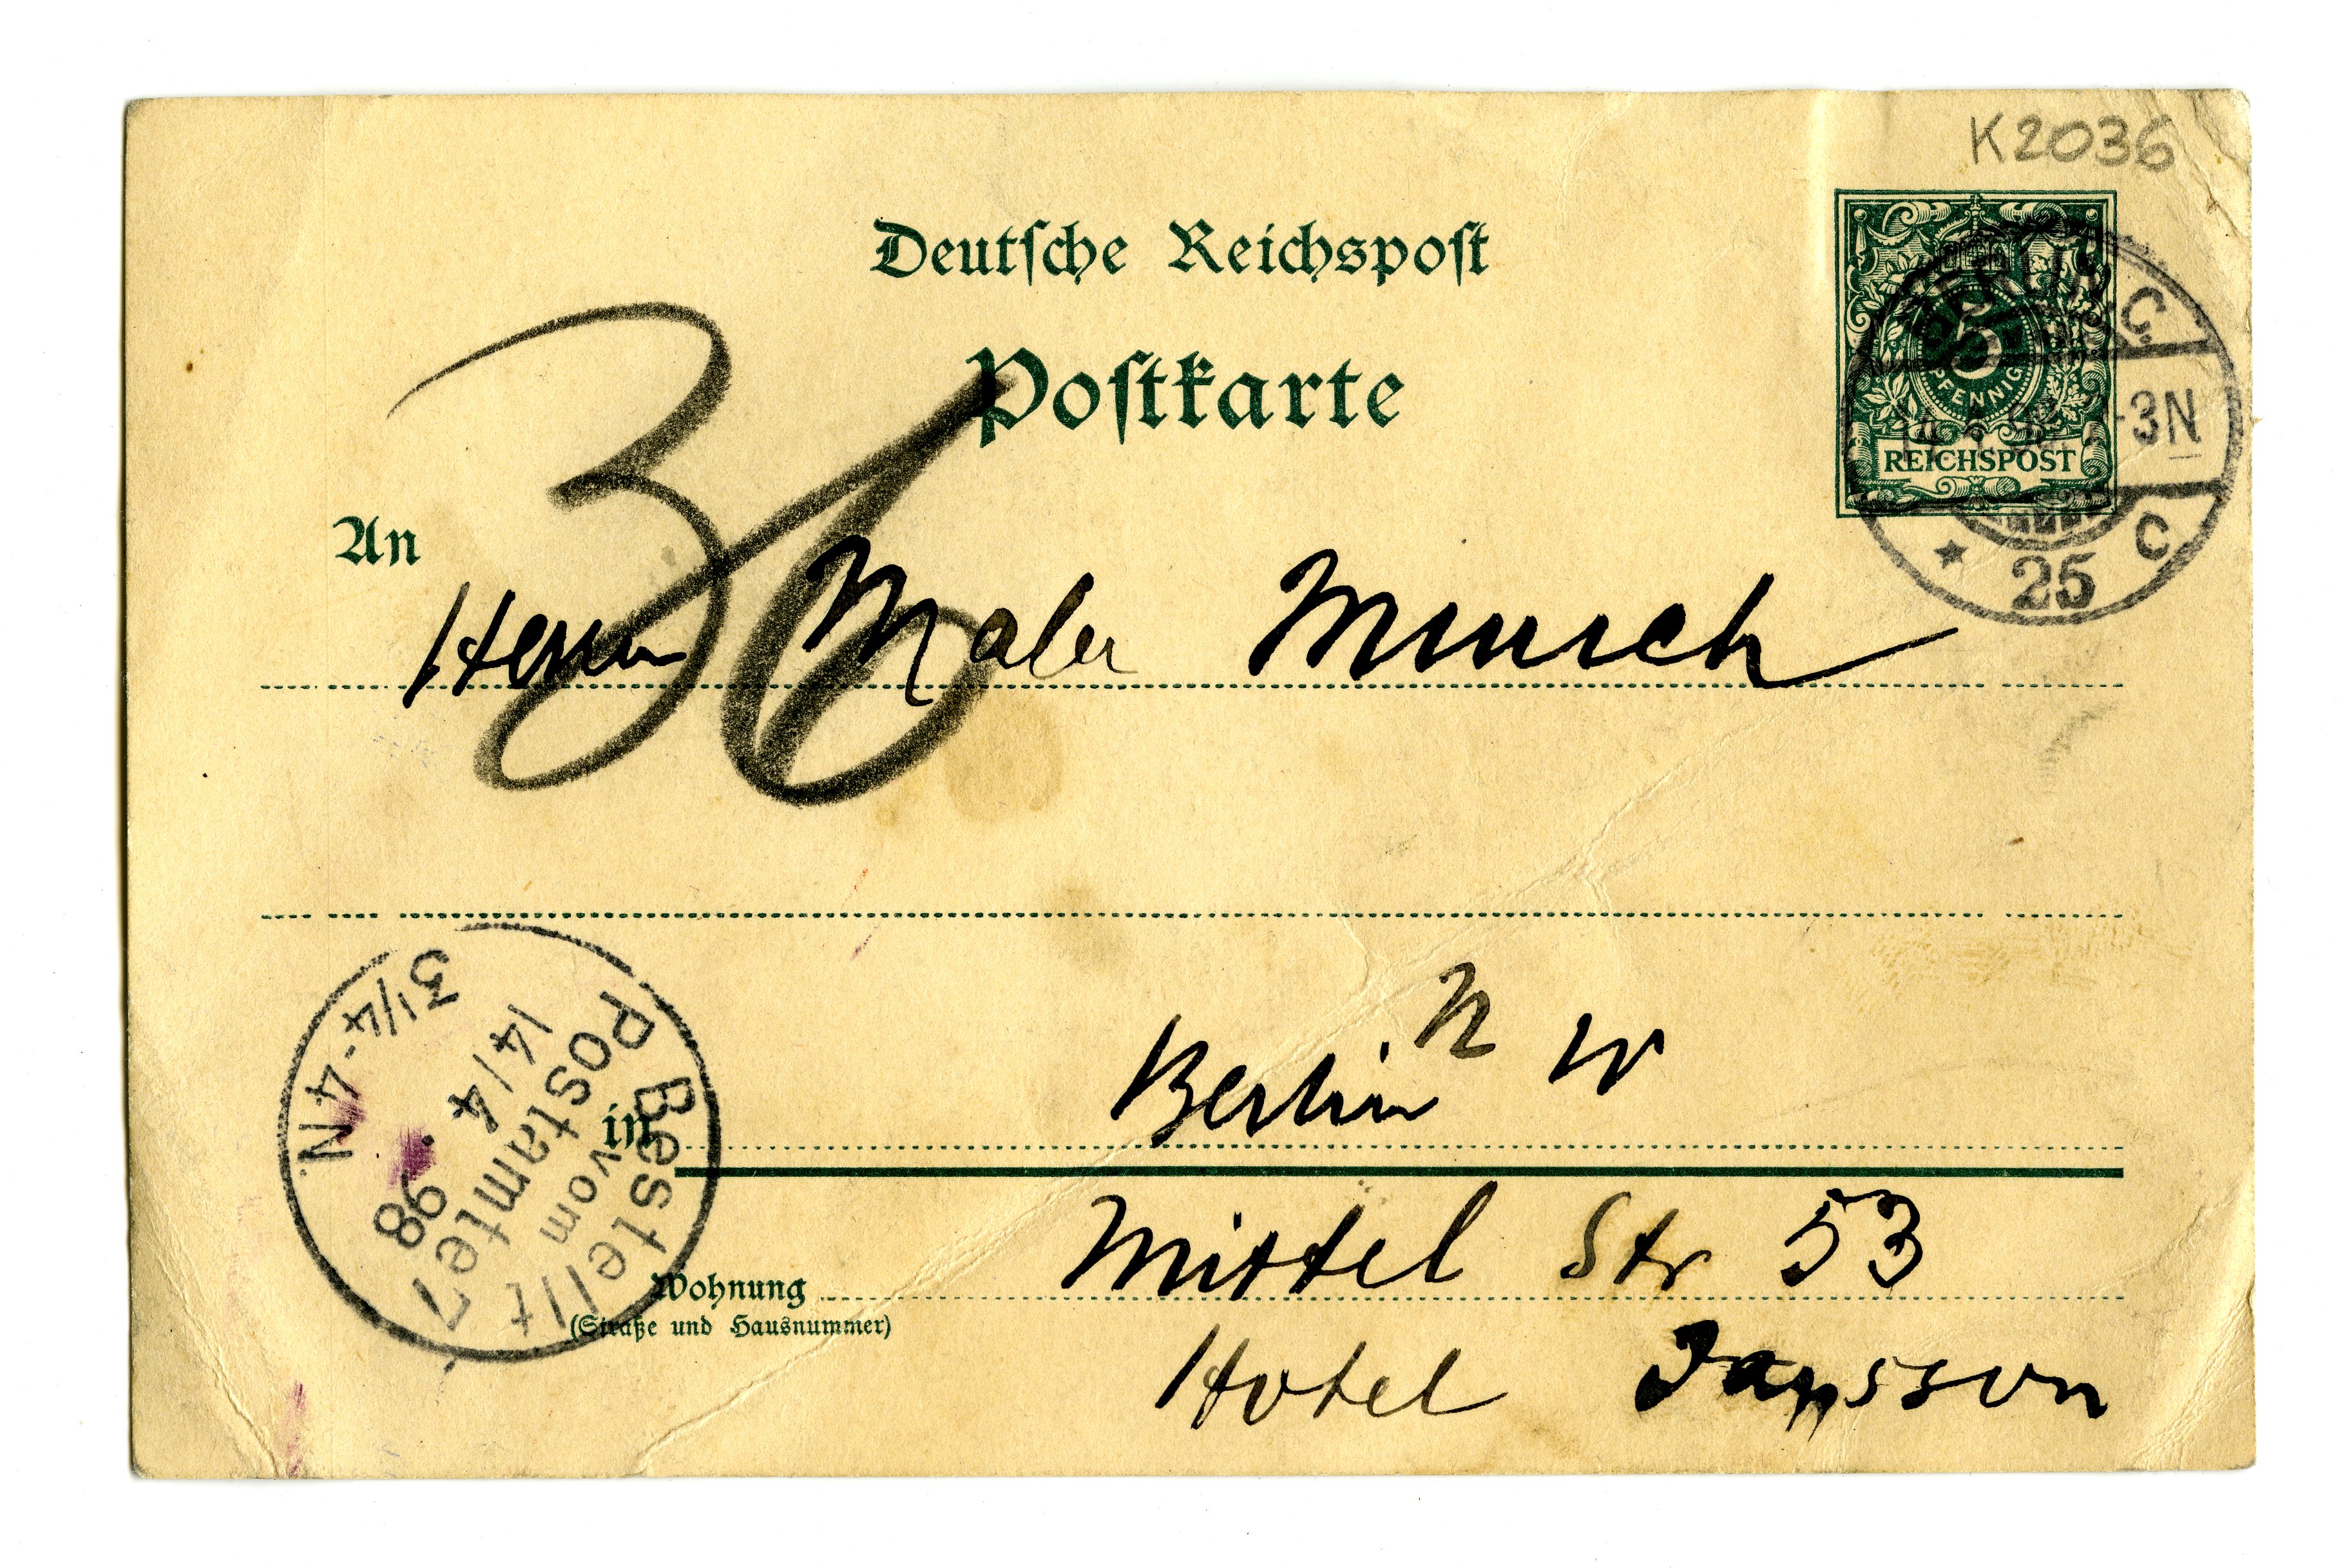 K2036
Deutsche Reichspost
Postkarte
5
PFENNIG
REICHSPOST
BERLIN C.
-3N
* 25 C
36
An
Herrn Maler Munch
in Berlin N W
Wohnung Mittel Str 53
(Straße und Hausnummer)
Hotel Janssson
Bestellt
vom
Postamte 7
14/4 . 98
3 1/4 - 4 N.